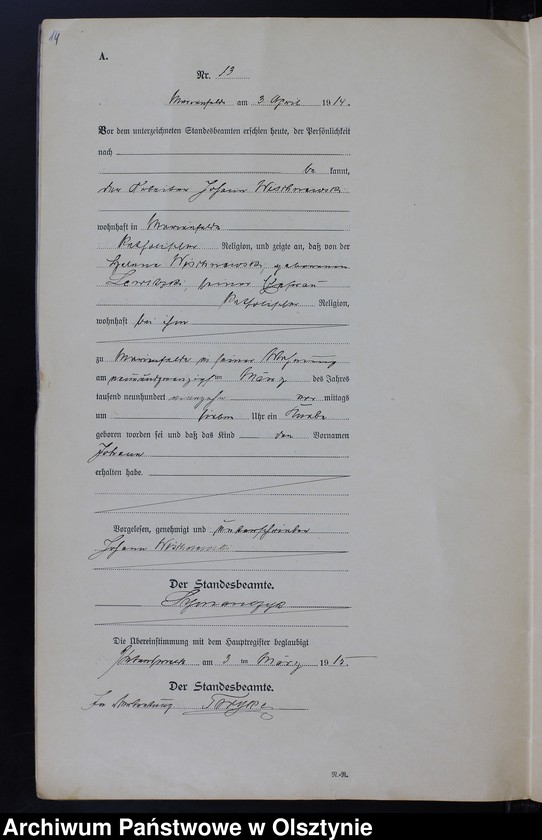 14
A.
Nr. 13
Marienfelde am 3 April 1914.
Vor dem unterzeichneten Standesbeamten erschien heute, der Persönlichkeit
nach
be kannt,
der Arbeiter Johann Wischnewski
wohnhaft in Marienfelde
katholischer Religion, und zeigte an, daß von der
Helena Wischnewski, geborenen
seiner Ehefrau
katholischer Religion,
wohnhaft bei ihm
zu Marienfelde in seiner Wohnung
am neunundzwanzigsten März des Jahres
tausend neunhundert vierzehn vor mittags
um sieben Uhr ein Knabe
geboren worden sei und daß das Kind den Vornamen
Johann
erhalten habe.
Vorgelesen, genehmigt und unterschrieben
Johann Wischnewski
Der Standesbeamte.
Die Übereinstimmung mit dem Hauptregister beglaubigt
am 3 ten März 1915.
Der Standesbeamte.
In Vertretung
R.-R.
Archiwum Państwowe w Olsztynie